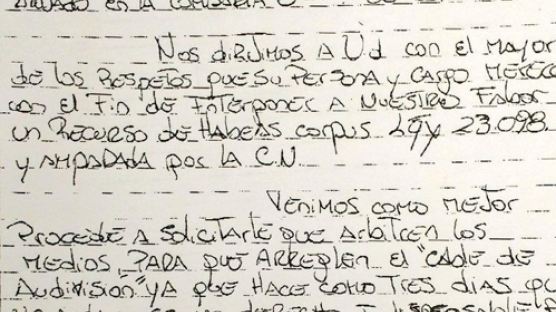 alojado en la comisaria
Nos dirijimos a Ud con el mayor
de los Respetos que su persona y cargo merece
con el Fin de Interponer a Nuestro Fabor
un Recurso de Habeas corpus Ley 23.098
y ampadada por la C.N.
Venimos como mejor
Procede a solicitarle que arbitren los
Medios, para que arreglen el "Cable de
Audivision" ya que hace como tres dias